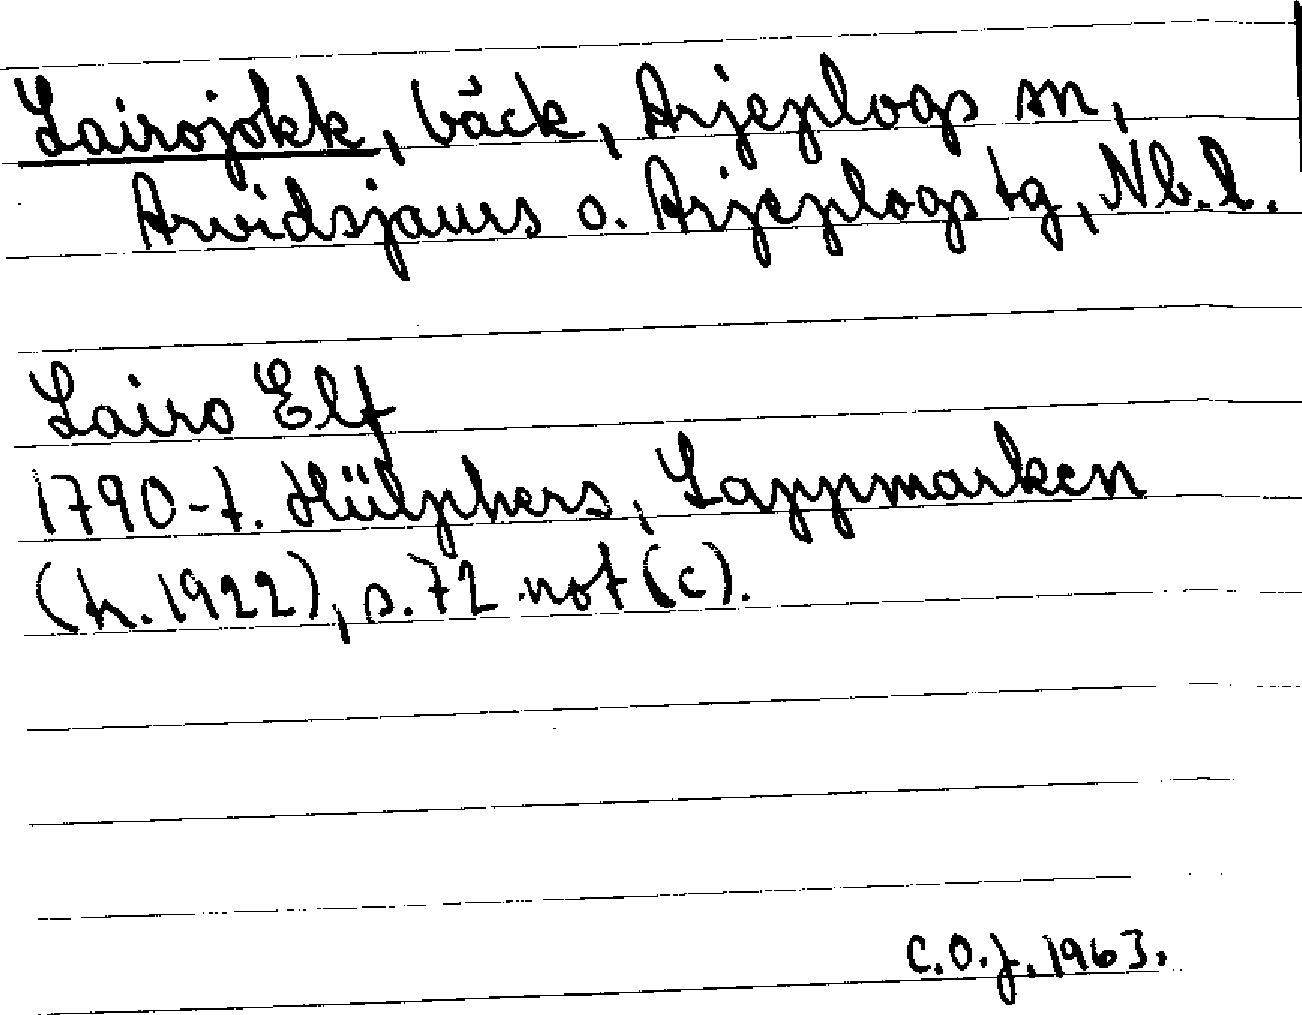 Lairojokk, bäck, Arjeplogs sn,
Arvidsjaurs o. Arjeplogs tg, Nb. l.
Lairo Elf
1790-t. Hülphers, Lappmarken
(tr. 1922), s. 72 not (c).
C.O.J. 1963.